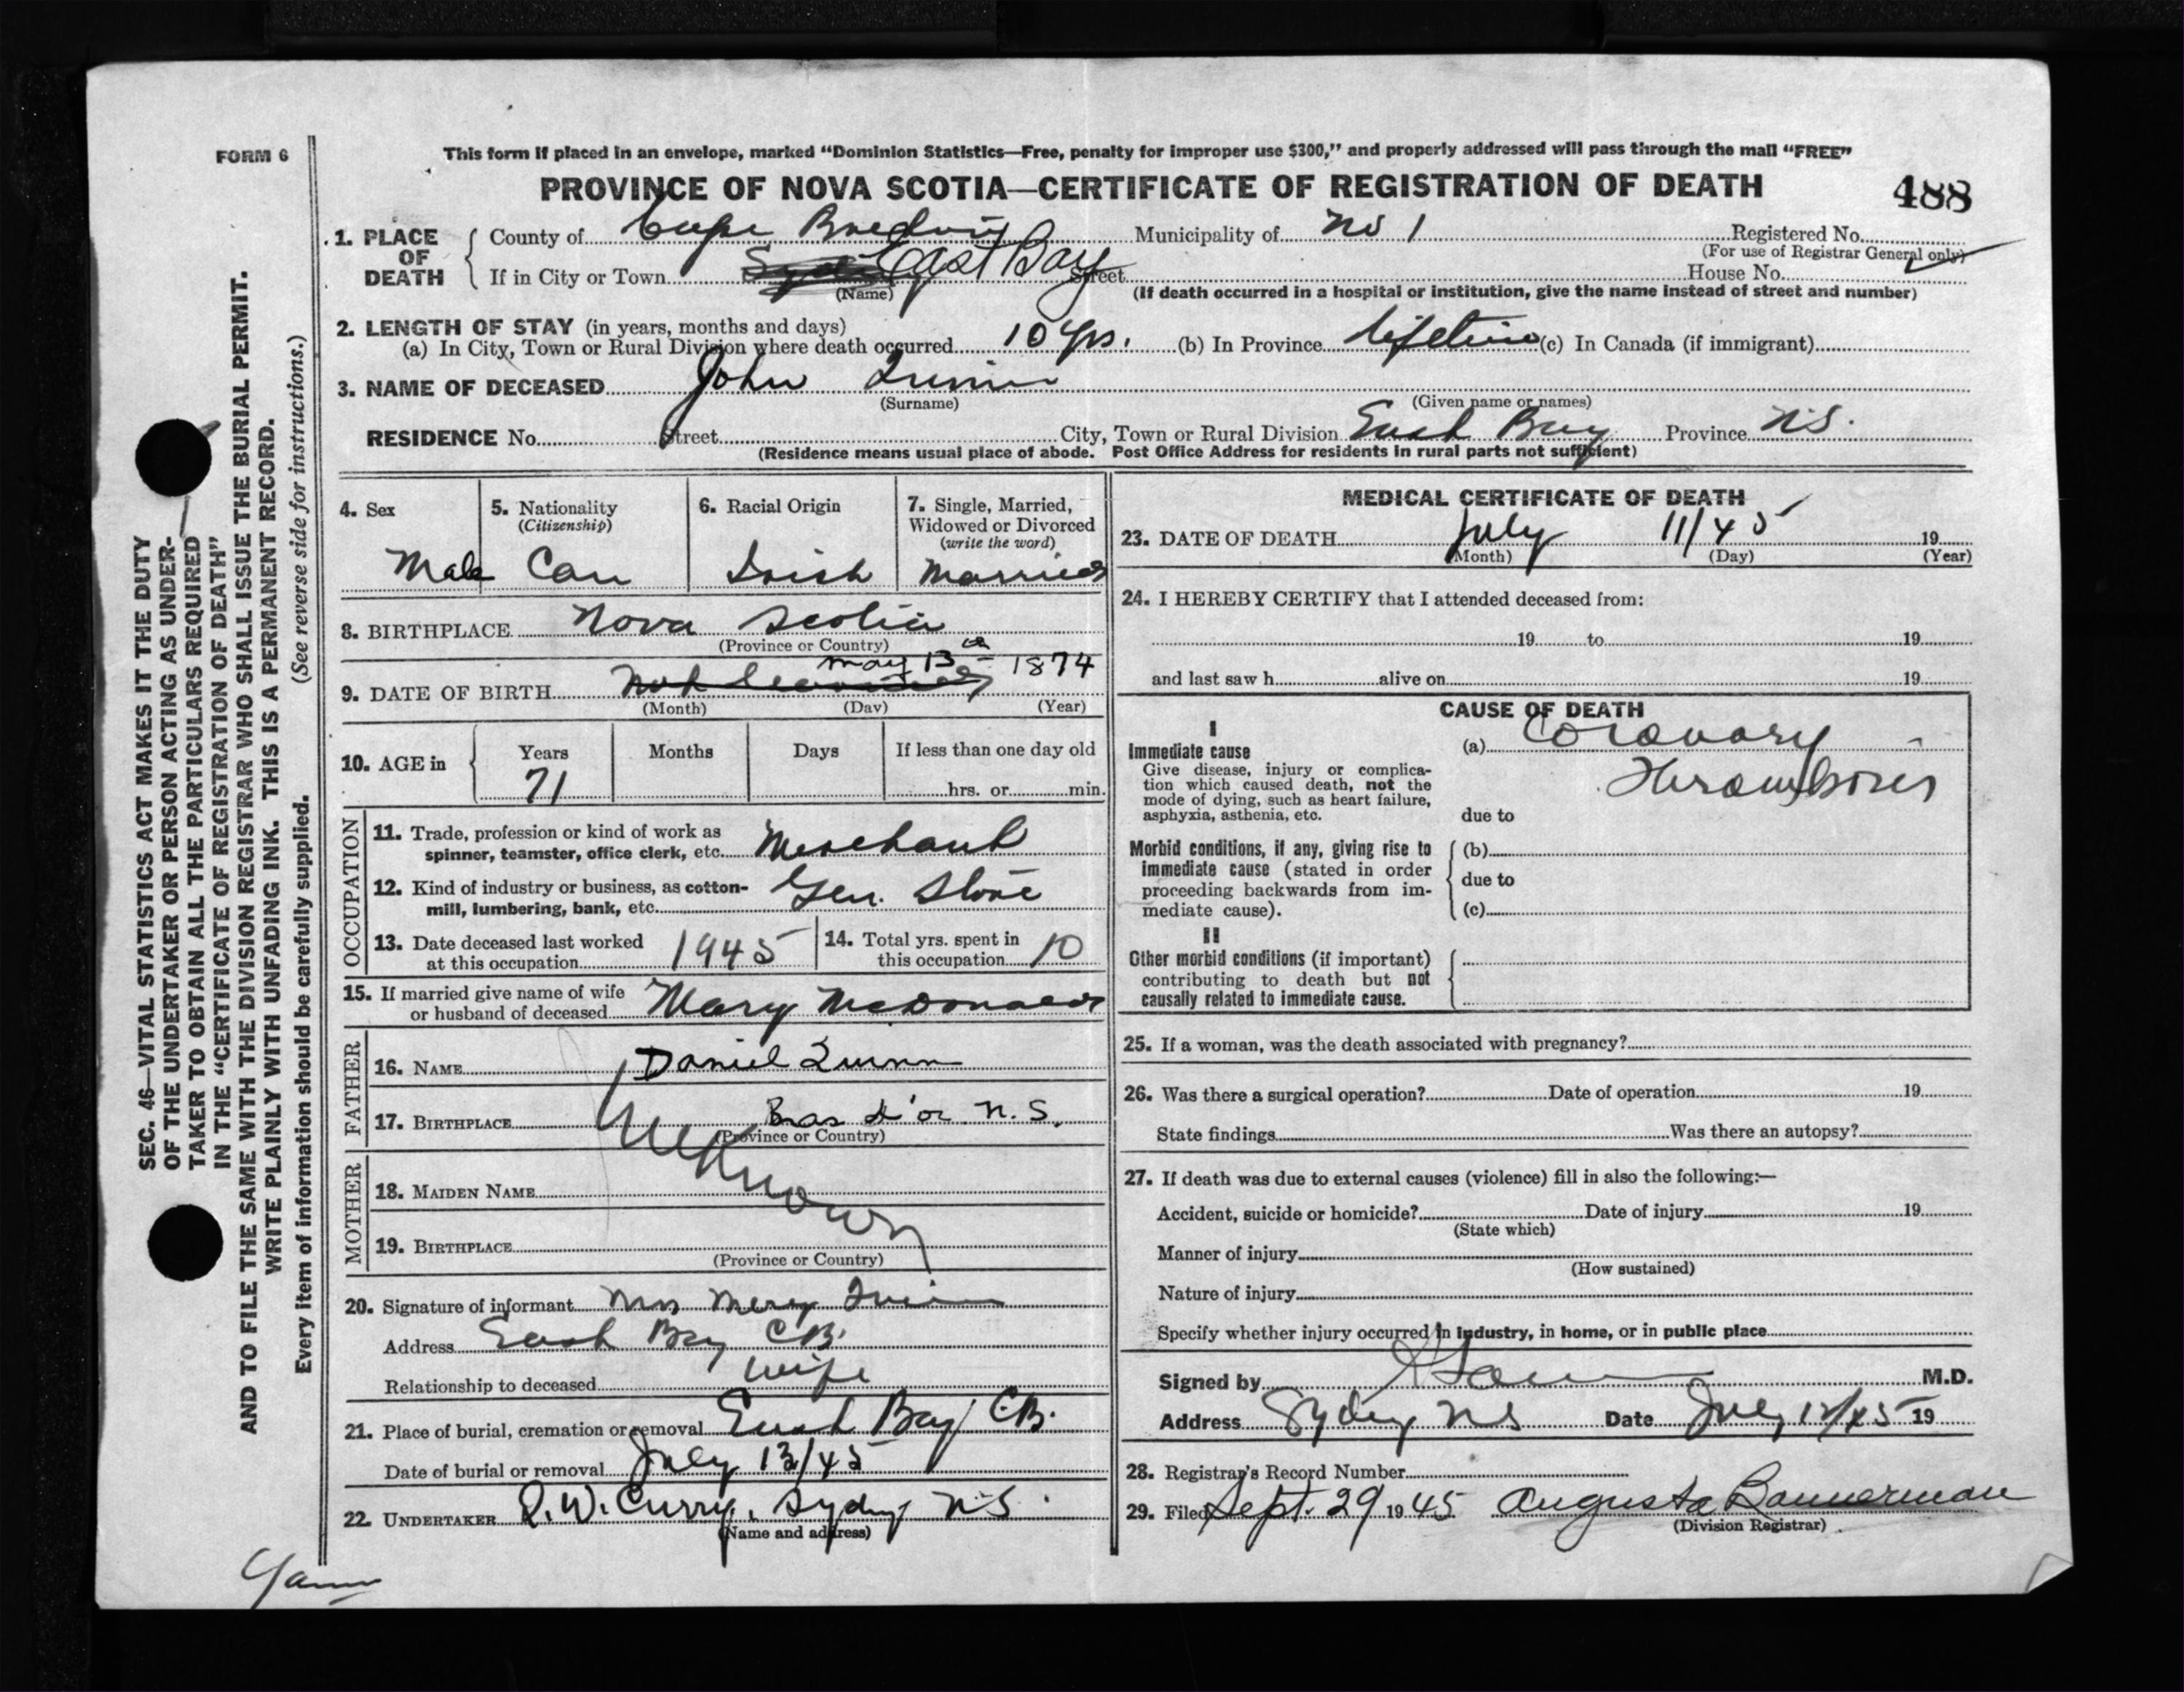 FORM 6
This form if placed in an envelope, marked “Dominion Statistics—Free, penalty for improper use $300,” and properly addressed will pass through the mail “FREE”
PROVINCE OF NOVA SCOTIA—CERTIFICATE OF REGISTRATION OF DEATH
488
1. PLACE OF DEATH
County of Cape Breton Municipality of No 1 Registered No.
(For use of Registrar General only)
If in City or Town East Bay Street House No.
(Name)
(If death occurred in a hospital or institution, give the name instead of street and number)
2. LENGTH OF STAY (in years, months and days)
(a) In City, Town or Rural Division where death occurred 10 yrs. (b) In Province lifetime (c) In Canada (if immigrant)
3. NAME OF DECEASED John Quinn
(Surname) (Given name or names)
RESIDENCE No. Street City, Town or Rural Division East Bay Province N.S.
(Residence means usual place of abode. Post Office Address for residents in rural parts not sufficient)
4. Sex
Male
5. Nationality
(Citizenship)
Can
6. Racial Origin
Irish
7. Single, Married,
Widowed or Divorced
(write the word)
Married
8. BIRTHPLACE Nova Scotia
(Province or Country)
May 13th 1874
9. DATE OF BIRTH
(Month) (Day) (Year)
10. AGE in
Years Months Days If less than one day old
71 hrs. or min.
OCCUPATION
11. Trade, profession or kind of work as
spinner, teamster, office clerk, etc. Merchant
12. Kind of industry or business, as cotton-
mill, lumbering, bank, etc. Gen. Store
13. Date deceased last worked
at this occupation 1945
14. Total yrs. spent in
this occupation 10
15. If married give name of wife
or husband of deceased Mary McDonald
FATHER
16. NAME Daniel Quinn
17. BIRTHPLACE Bras d'or N.S.
(Province or Country)
Unknown
MOTHER
18. MAIDEN NAME
19. BIRTHPLACE
(Province or Country)
20. Signature of informant Mrs Mary Quinn
Address East Bay C.B.
Relationship to deceased wife
21. Place of burial, cremation or removal East Bay C.B.
Date of burial or removal July 13/45
22. UNDERTAKER Q.W. Curry, Sydney N.S.
(Name and address)
MEDICAL CERTIFICATE OF DEATH
23. DATE OF DEATH July 11/45 19
(Month) (Day) (Year)
24. I HEREBY CERTIFY that I attended deceased from:
19 to 19
and last saw h alive on 19
CAUSE OF DEATH
I
Immediate cause
Give disease, injury or complica-
tion which caused death, not the
mode of dying, such as heart failure,
asphyxia, asthenia, etc.
(a) Coronary
Thrombosis
due to
Morbid conditions, if any, giving rise to
immediate cause (stated in order
proceeding backwards from im-
mediate cause).
(b)
due to
(c)
II
Other morbid conditions (if important)
contributing to death but not
causally related to immediate cause.
25. If a woman, was the death associated with pregnancy?
26. Was there a surgical operation? Date of operation 19
State findings Was there an autopsy?
27. If death was due to external causes (violence) fill in also the following:—
Accident, suicide or homicide? Date of injury 19
(State which)
Manner of injury
(How sustained)
Nature of injury
Specify whether injury occurred in industry, in home, or in public place
Signed by M.D.
Address Sydney NS Date July 12/45 19
28. Registrar's Record Number
29. Filed Sept. 29 1945 Augusta Bannerman
(Division Registrar)
SEC. 46—VITAL STATISTICS ACT MAKES IT THE DUTY
OF THE UNDERTAKER OR PERSON ACTING AS UNDER-
TAKER TO OBTAIN ALL THE PARTICULARS REQUIRED
IN THE “CERTIFICATE OF REGISTRATION OF DEATH”
AND TO FILE THE SAME WITH THE DIVISION REGISTRAR WHO SHALL ISSUE THE BURIAL PERMIT.
WRITE PLAINLY WITH UNFADING INK. THIS IS A PERMANENT RECORD.
Every item of information should be carefully supplied. (See reverse side for instructions.)